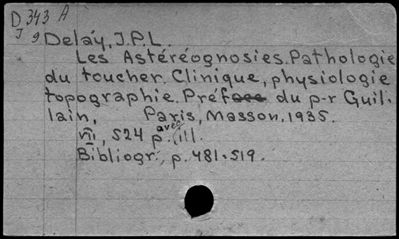 D 343 A
J 9
Delay, J.P.L.
Les Astéréognosies. Pathologie
du toucher. Clinique, physiologie
topographie. Preface du p-r Guil-
lain, Paris, Masson, 1935.
VII, 524 p. avec ill.
Bibliogr., p. 481-519.